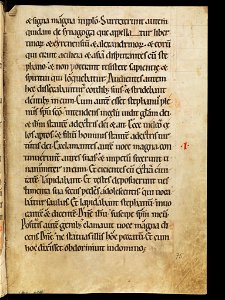 & signa magna in pplo. Surrexerunt autem
quidam de synagoga que appellatur liber
tinorū & cyrenensium & alexandrinorū & eorū
qui erant a cilicia & asia disputantes cū ste
phano & non poterant resistere sapientie &
spiritui qui loquebatur. Audientes autem
hec dissecabantur cordibꝰ suis & stridebant
dentibꝰ in eum. Cum autē esset stephanꝰ ple
nus spū sco intendens in celū uidit glam dei
& ihm stantē adextris dei & ait. Ecce uideo ce
los aptos & filiū hominis stantē adextris uir
tutis dei. Exclamantes autē uoce magna con
tinuerunt aures suas & impetū fecerunt u
nanimiter in eum. Et eicientes eū extra ciui
tatē lapidabant. Et testes deposuerunt ues
timenta sua secus pedes adolescentis qui uoca
batur saulus. Et lapidabant stephanū inuo
cantē & dicentē. Dn̄e ihu suscipe spm̄ meū.
Positis autē genibꝰ clamauit uoce magna di
cens. Dn̄e ne statuas illis hoc peccatū. Et cum
hoc dixisset obdormiuit in domino.